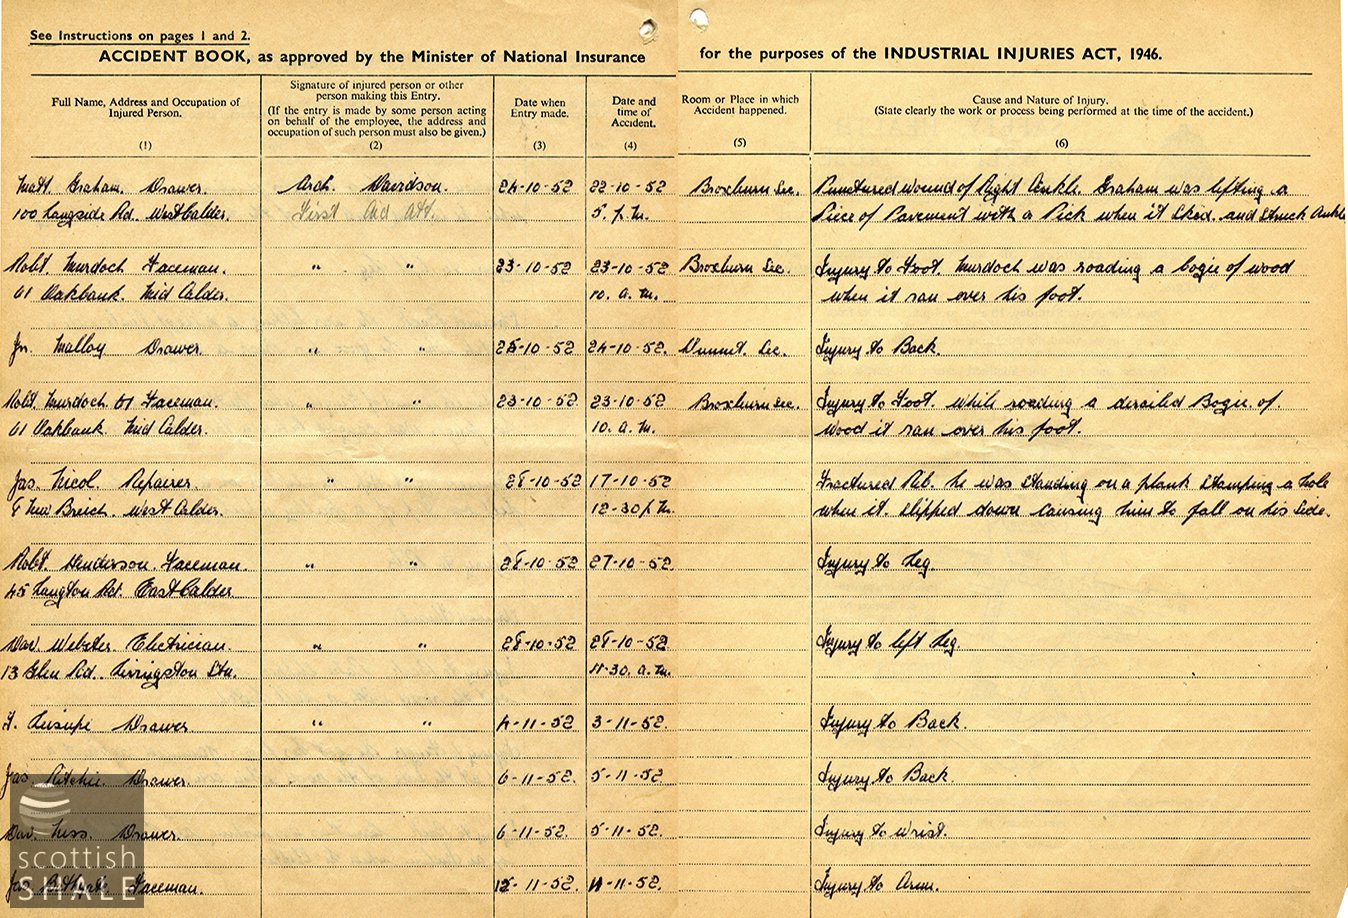 See Instructions on pages 1 and 2.
ACCIDENT BOOK, as approved by the Minister of National Insurance for the purposes of the INDUSTRIAL INJURIES ACT, 1946.
Full Name, Address and Occupation of Injured Person. (1)
Signature of injured person or other person making this Entry. (If the entry is made by some person acting on behalf of the employee, the address and occupation of such person must also be given.) (2)
Date when Entry made. (3)
Date and time of Accident. (4)
Room or Place in which Accident happened. (5)
Cause and Nature of Injury. (State clearly the work or process being performed at the time of the accident.) (6)
Matt. Graham. Drawer. Arch. Davidson. 24-10-52 22-10-52 Broxburn Sec. Punctured wound of Right Ankle. Graham was lifting a
100 Langside Rd. West Calder. First Aid Att. 5. p.m. Piece of Pavement with a Pick when it Skid. and struck Ankle
Robt. Murdoch Faceman. " " 23-10-52 23-10-52 Broxburn Sec. Injury to Foot. Murdoch was roading a bogie of wood
61 Oakbank. Mid Calder. 10. a.m. when it ran over his foot.
Jn. Malloy Drawer. " " 25-10-52 24-10-52. Dunnet. Sec. Injury to Back.
Robt. Murdoch. 61 Faceman. " " 23-10-52. 23-10-52 Broxburn Sec. Injury to Foot. while roading a derailed Bogie of
61 Oakbank Mid Calder. 10. a.m. wood it ran over his foot.
Jas. Nicol. Repairer. " " 28-10-52 17-10-52 Fractured Rib. he was standing on a plank stamping a hole
8 New Breich. West Calder. 12-30 p.m. when it slipped down causing him to fall on his side.
Robt. Henderson. Faceman. " " 28-10-52 27-10-52 Injury to Leg
45 Langton Rd. East Calder
Dav. Webster Electrician. " " 28-10-52 28-10-52 Injury to left Leg.
13 Glen Rd. Livingston Stn. 11-30. a.m.
Drawer " " 4-11-52 3-11-52. Injury to Back.
Jas. Ritchie Drawer. 6-11-52. 5-11-52. Injury to Back.
Dav. Drawer. 6-11-52. 5-11-52. Injury to Wrist.
Faceman. 12-11-52. 11-11-52. Injury to Arm.
scottish
SHALE